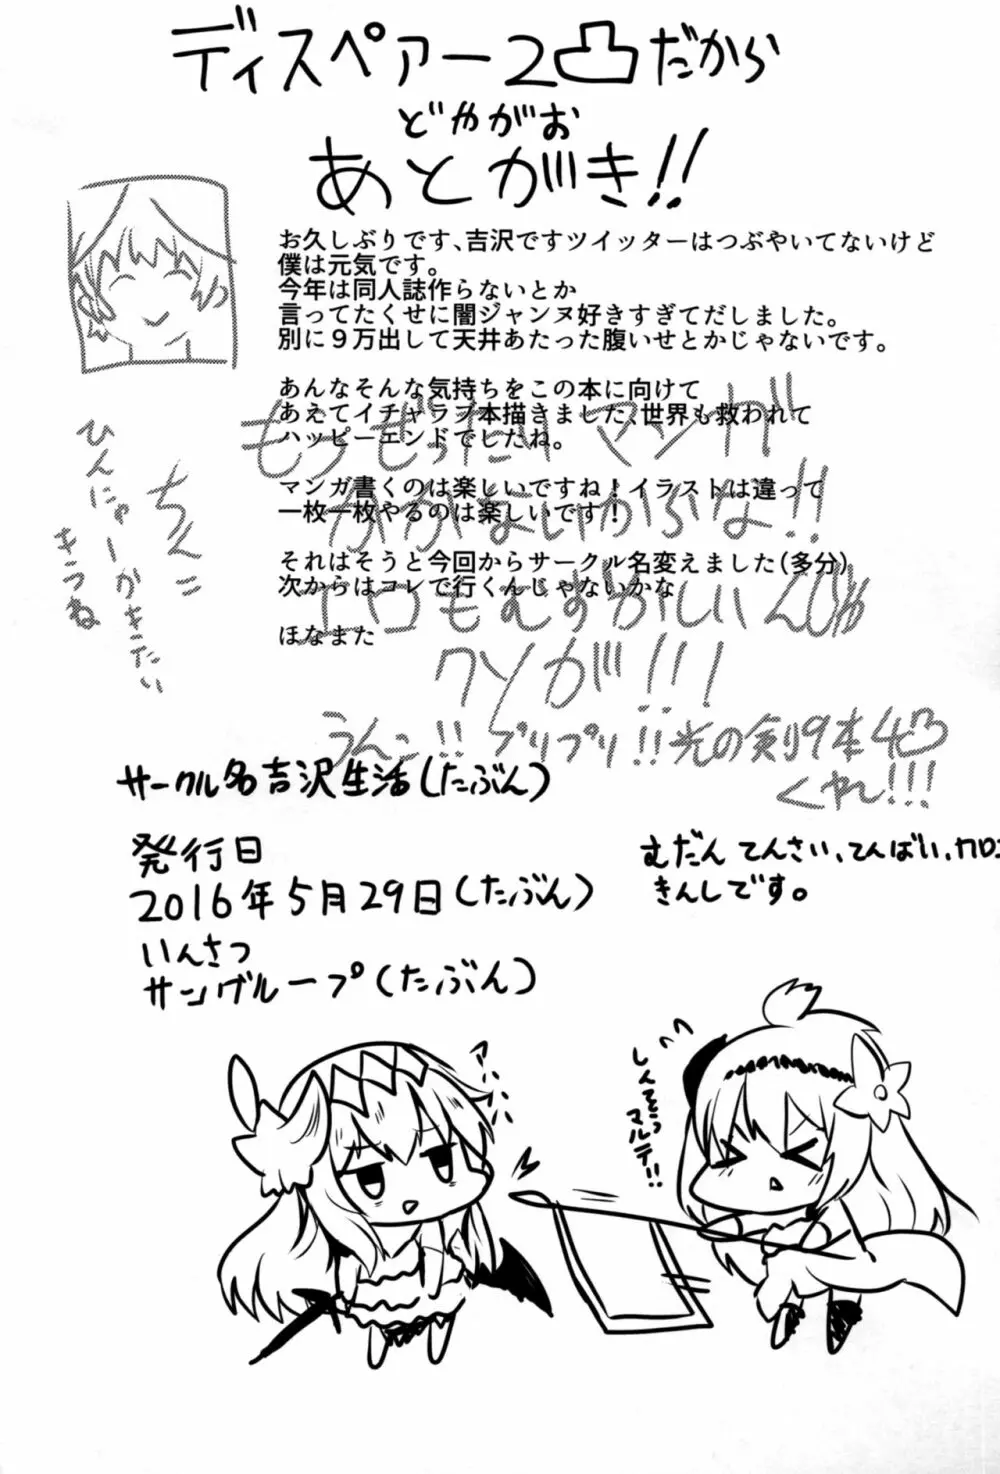 ディスペアー2凸だから
どやがお
あとがき!!
お久しぶりです、吉沢ですツイッターはつぶやいてないけど
僕は元気です。
今年は同人誌作らないとか
言ってたくせに闇ジャンヌ好きすぎてだしました。
別に９万出して天井あたった腹いせとかじゃないです。
あんなそんな気持ちをこの本に向けて
あえてイチャラブ本描きました、世界も救われて
ハッピーエンドでしたね。
マンガ書くのは楽しいですね！イラストは違って
一枚一枚やるのは楽しいです！
それはそうと今回からサークル名変えました(多分)
次からはコレで行くんじゃないかな
ほなまた
もうぜったいマンガ
かかないからな!!
エロもむずかしいんじゃ
クソが!!!
うんこ!!ブリブリ!!光の剣9本4凸
くれ!!!
ちんこ
ひんにゅーかきたい
きつね
サークル名吉沢生活(たぶん)
発行日
2016年5月29日(たぶん)
いんさつ
サングループ(たぶん)
むだんてんさい、てんばい、
きんしです。
しんてつ
マルテ!!